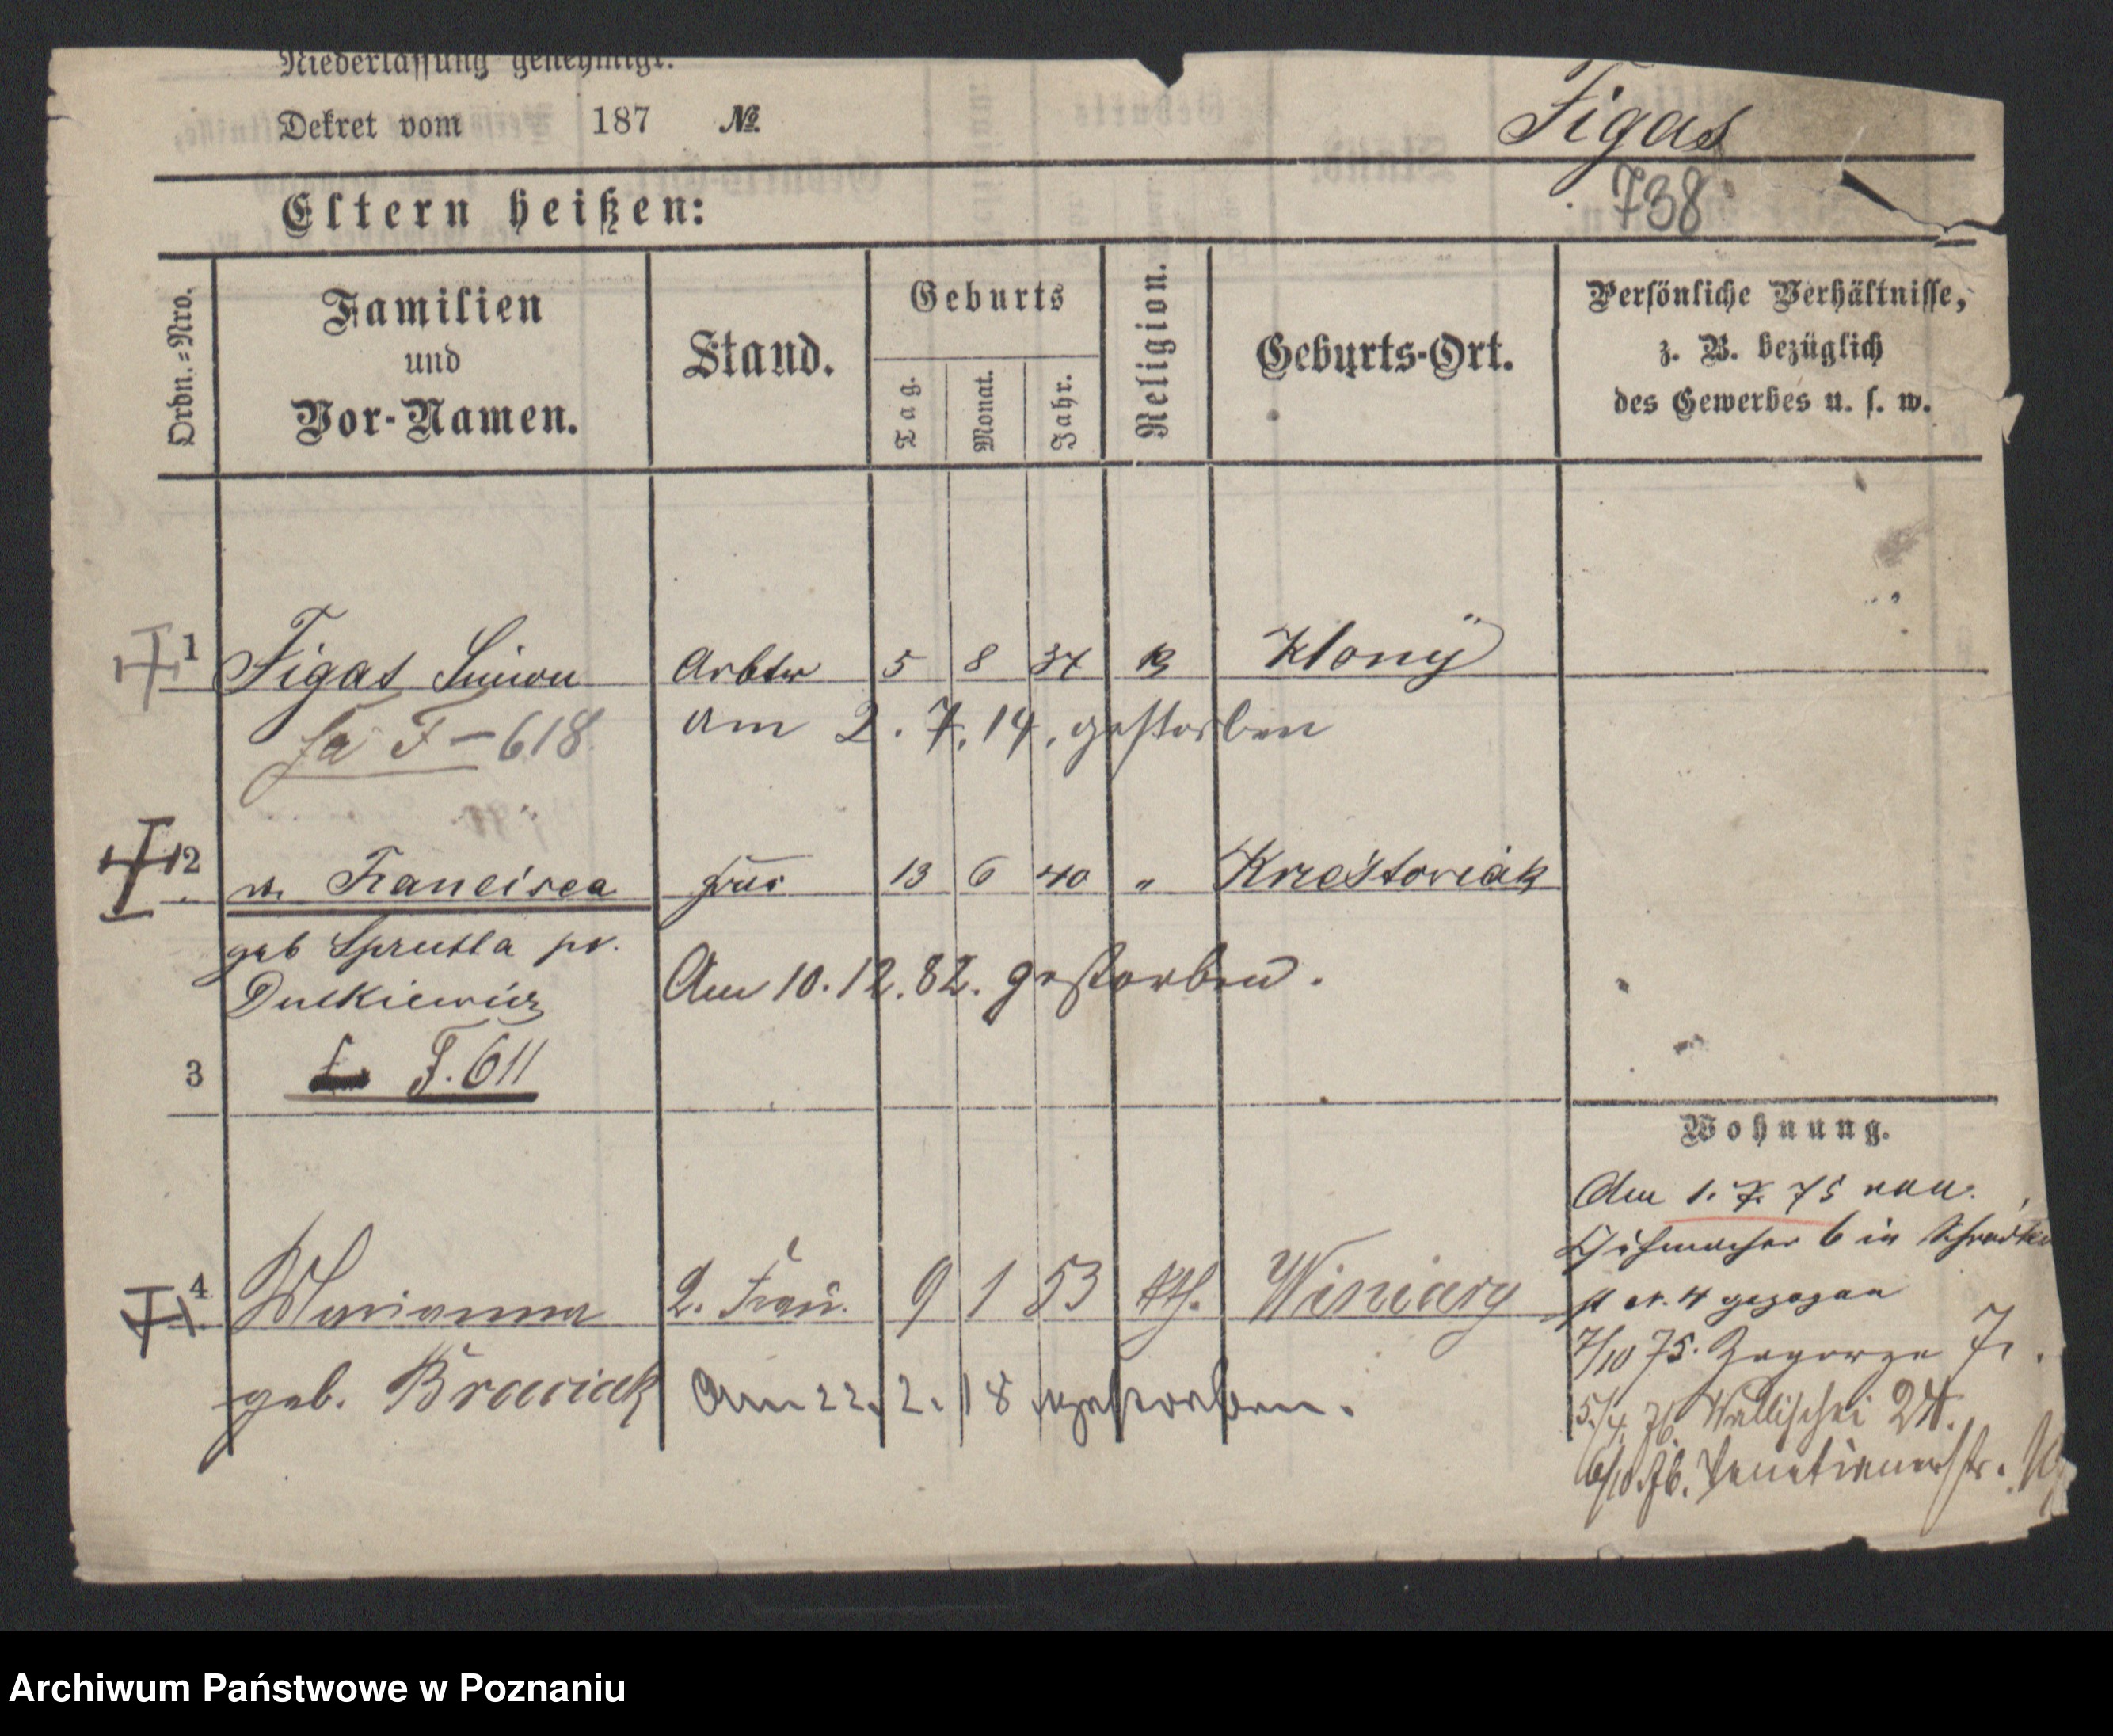 Niederlassung genehmigt.
Dekret vom 187 №
Figas
738
Eltern heißen:
Ordn.=Nro.
Familien
und
Vor-Namen.
Stand.
Geburts
Tag.
Monat.
Jahr.
Religion.
Geburts-Ort.
Persönliche Verhältnisse,
z. B. bezüglich
des Gewerbes u. s. w.
1 Figas Simon Arbtr 5 8 34 K Klony
fa F-618 am 2. 7. 14. gestorben
2 Francisca Frau 13 6 40 "
geb Sprutta
Dutkiewicz Am 10. 12. 82. gestorben.
3 F. 611
Wohnung.
Am 1. 7. 75 von
6 in Schrodka
4 gezogen
4 Marianna 2. Frau. 9 1 53 kth. Winiary
7/10 75. Zagorze 7.
geb. Brawiak Am 22. 2. 18 gestorben.
5/4. 76 Wallischei 24.
6/10. 76. Venetianerstr.
Archiwum Państwowe w Poznaniu